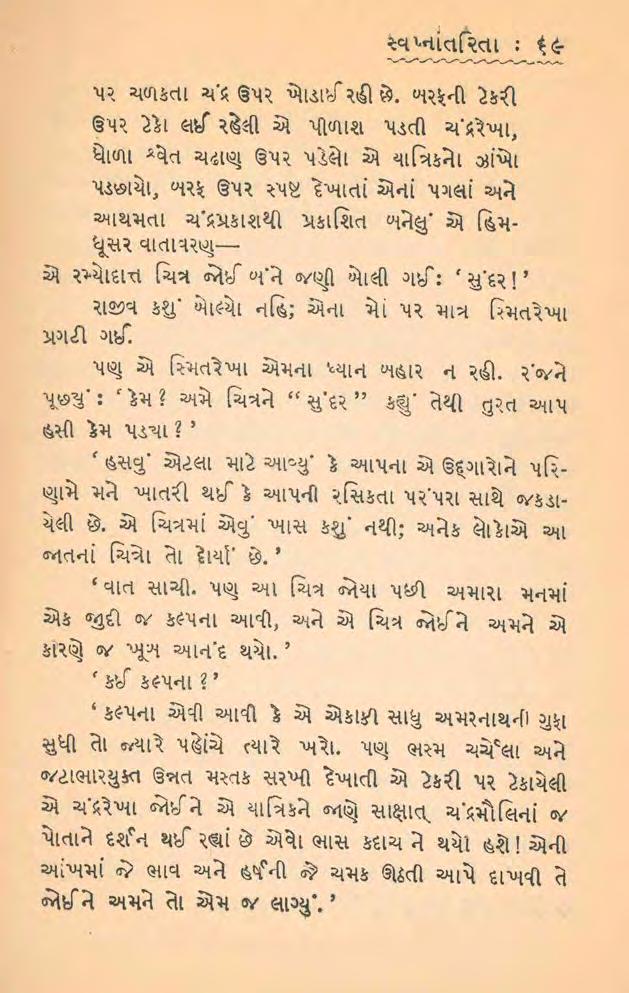 સ્વપ્નાંતરિતા : ૬૯
પર ચળકતા ચંદ્ર ઉપર ખોડાઈ રહી છે. બરફની ટેકરી
ઉપર ટેકો લઈ રહેલી એ પીળાશ પડતી ચંદ્રરેખા,
ધોળા શ્વેત ચઢાણ ઉપર પડેલો એ યાત્રિકનો ઝાંખો
પડછાયો, બરફ ઉપર સ્પષ્ટ દેખાતાં એનાં પગલાં અને
આથમતા ચંદ્રપ્રકાશથી પ્રકાશિત બનેલું એ હિમ-
ધૂસર વાતાવરણ—
એ રમ્યોદાત્ત ચિત્ર જોઈ બંને જણી બોલી ગઈ: ‘સુંદર!’
રાજીવ કશું બોલ્યો નહિ; એના મોં પર માત્ર સ્મિતરેખા
પ્રગટી ગઈ.
પણ એ સ્મિતરેખા એમના ધ્યાન બહાર ન રહી. રંજને
પૂછ્યું: ‘કેમ? અમે ચિત્રને “સુંદર” કહ્યું તેથી તુરત આપ
હસી કેમ પડ્યા?’
‘હસવું એટલા માટે આવ્યું કે આપના એ ઉદ્ગારોને પરિ-
ણામે મને ખાતરી થઈ કે આપની રસિકતા પરંપરા સાથે જકડા-
યેલી છે. એ ચિત્રમાં એવું ખાસ કશું નથી; અનેક લોકોએ આ
જાતનાં ચિત્રો તો દોર્યાં છે.’
‘વાત સાચી. પણ આ ચિત્ર જોયા પછી અમારા મનમાં
એક જુદી જ કલ્પના આવી, અને એ ચિત્ર જોઈને અમને એ
કારણે જ ખૂબ આનંદ થયો.’
‘કઈ કલ્પના?’
‘કલ્પના એવી આવી કે એ એકાકી સાધુ અમરનાથની ગુફા
સુધી તો જ્યારે પહોંચે ત્યારે ખરો. પણ ભસ્મ ચર્ચેલા અને
જટાભારયુક્ત ઉન્નત મસ્તક સરખી દેખાતી એ ટેકરી પર ટેકાયેલી
એ ચંદ્રરેખા જોઈને એ યાત્રિકને જાણે સાક્ષાત્ ચંદ્રમૌલિનાં જ
પોતાને દર્શન થઈ રહ્યાં છે એવો ભાસ કદાચ ને થયો હશે! એની
આંખમાં જે ભાવ અને હર્ષની જે ચમક ઊઠતી આપે દાખવી તે
જોઈને અમને તો એમ જ લાગ્યું.’